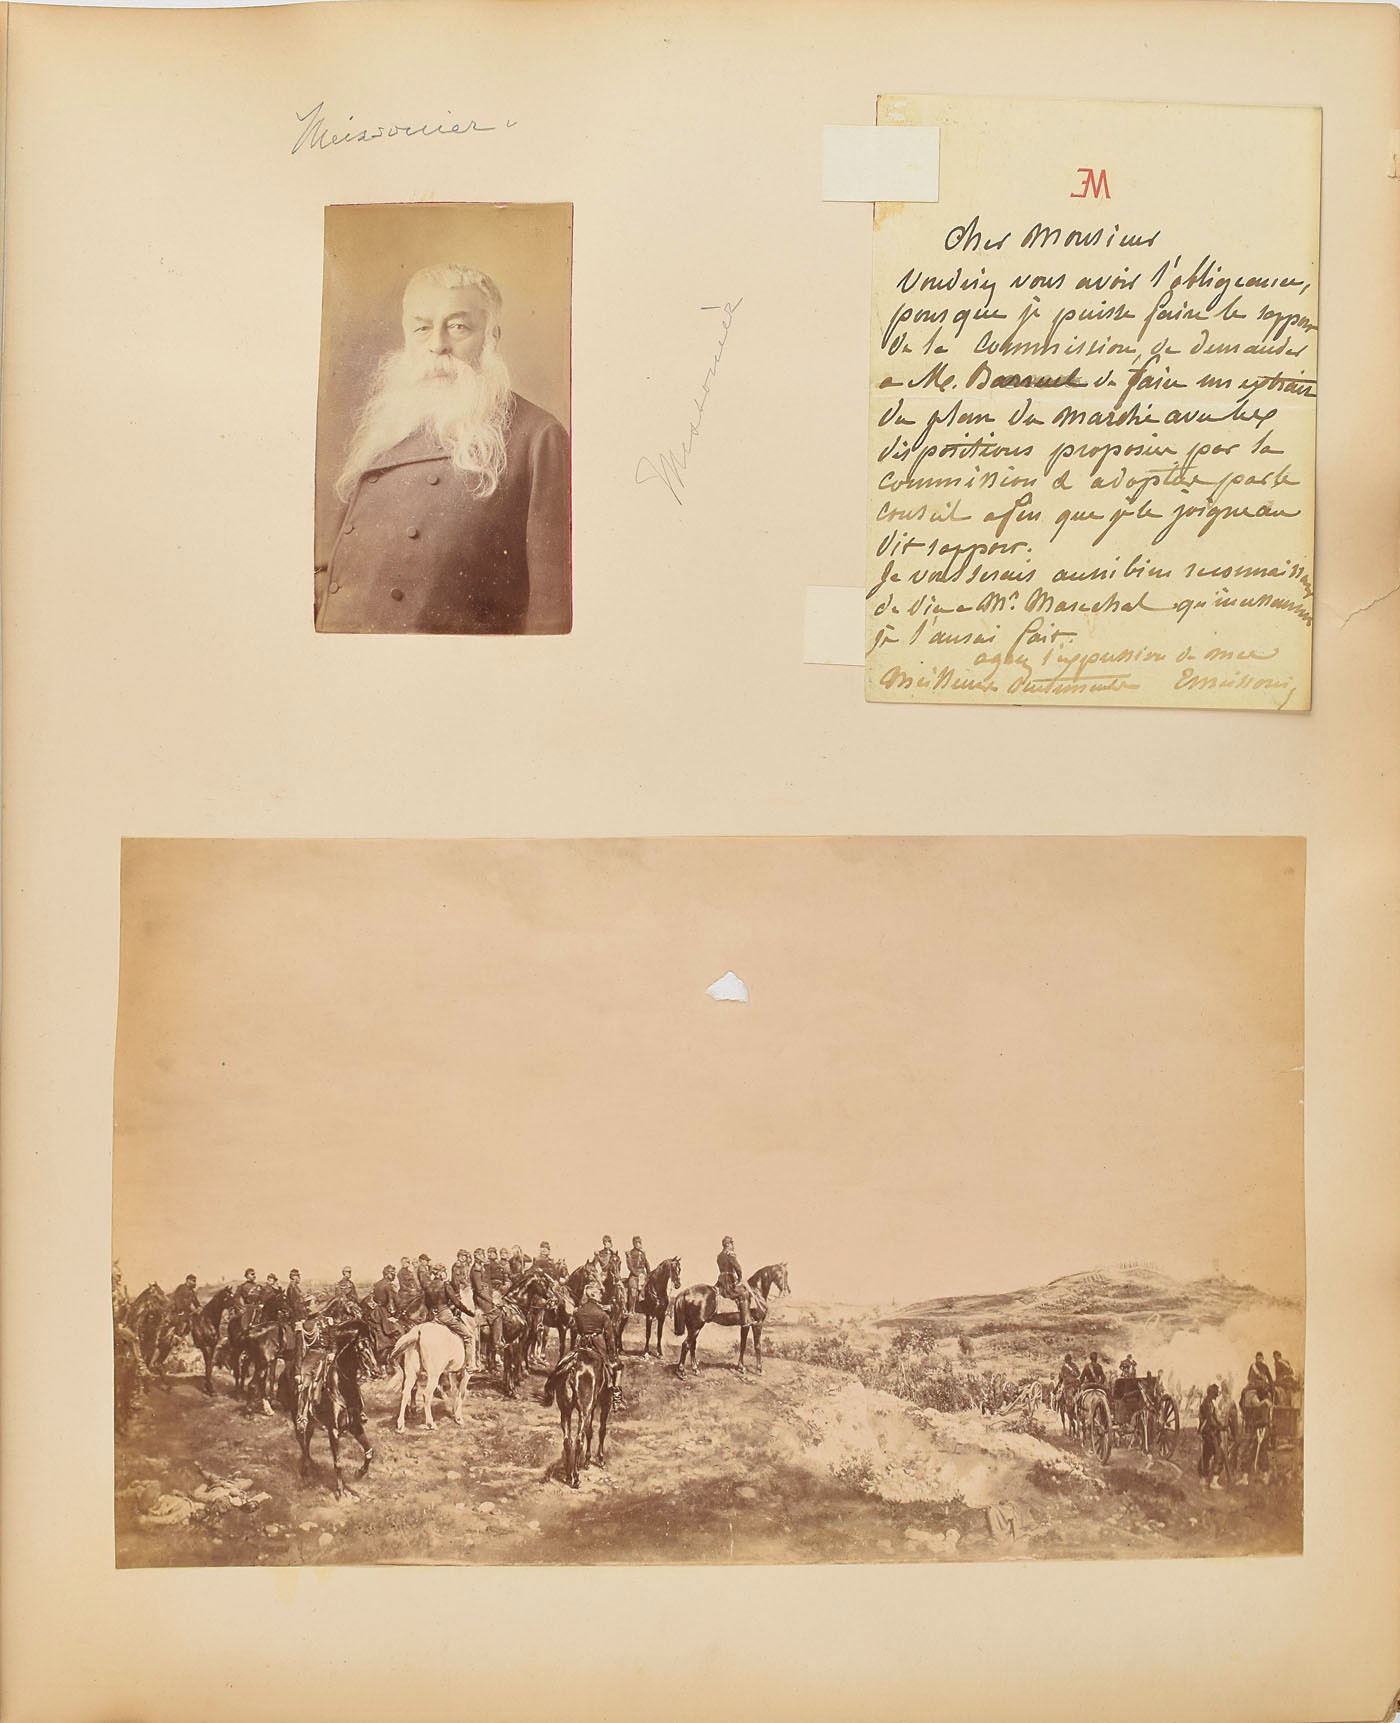 Meissonier
Messonier
EM
Cher Monsieur
Voudriez vous avoir l'obligeance,
pour que je puisse faire le rappor
de la Commission, de demander
a Mr. Barruel de faire un extrait
du plan du Marché avec les
dispositions proposées par la
commission & adoptées par le
conseil afin que je le joigne au
dit rappor.
Je vous serais aussi bien reconnaissant
de dire a Mr. Marechal qu'incessamment
je l'aurai fait.
agréez l'expression de mes
Meilleurs sentiments EMeissonier